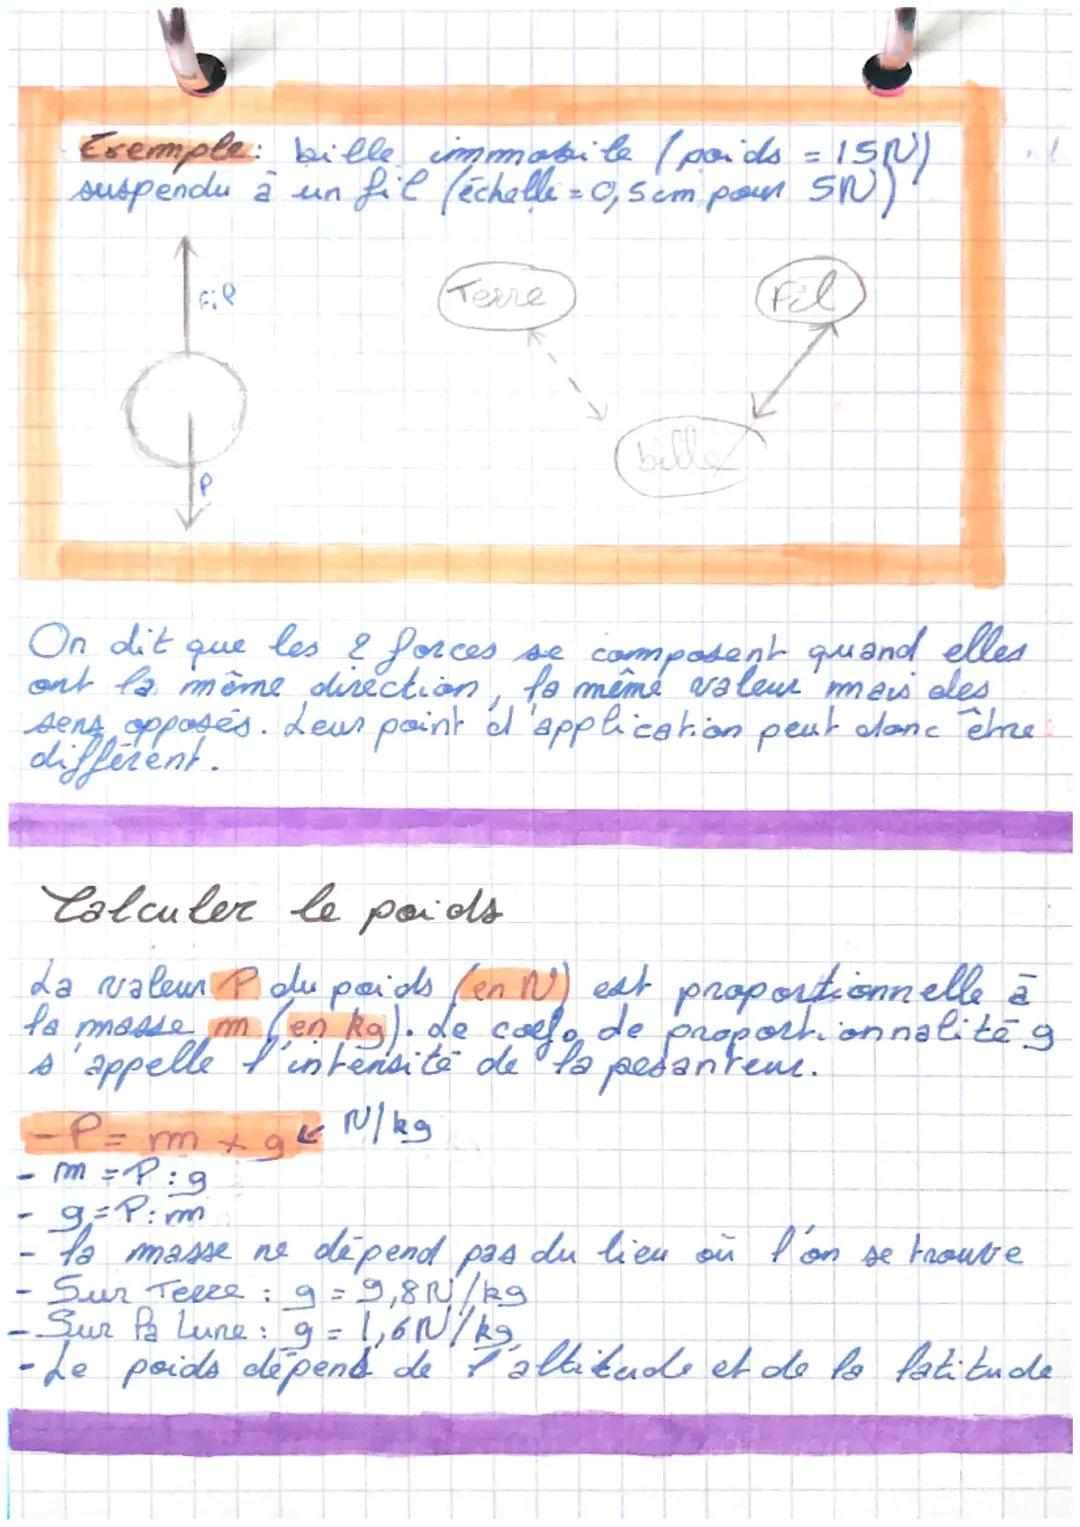 Exemple: bille immobile (poids = 15N)
suspendu à un fil (échelle = 0,5cm pour 5N)
Fil
Terre
Fil
bille
P
On dit que les 2 forces se composent quand elles
ont la même direction, la même valeur mais des
sens opposés. Leur point d'application peut donc être
différent.
Calculer le poids
La valeur P du poids (en N) est proportionnelle à
la masse m (en kg). Le coef. de proportionnalité g
s'appelle l'intensité de la pesanteur.
- P = m x g ↙ N/kg
- m = P : g
- g = P : m
- la masse ne dépend pas du lieu où l'on se trouve
- Sur Terre : g = 9,8N/kg
- Sur la Lune : g = 1,6N/kg
- Le poids dépend de l'altitude et de la latitude